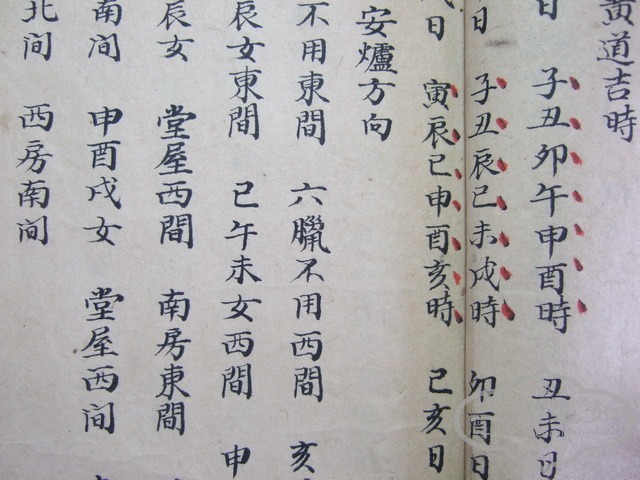 黄道吉時
日　子丑卯午申酉時　丑未日
日　子丑辰巳未戌時　卯酉日
日　寅辰巳申酉亥時　巳亥日
安爐方向
不用東間　六臘不用西間　亥
辰女東間　巳午未女西間　申
辰女　堂屋西間　南房東間
南间　申酉戌女　堂屋西间
北间　西房南间